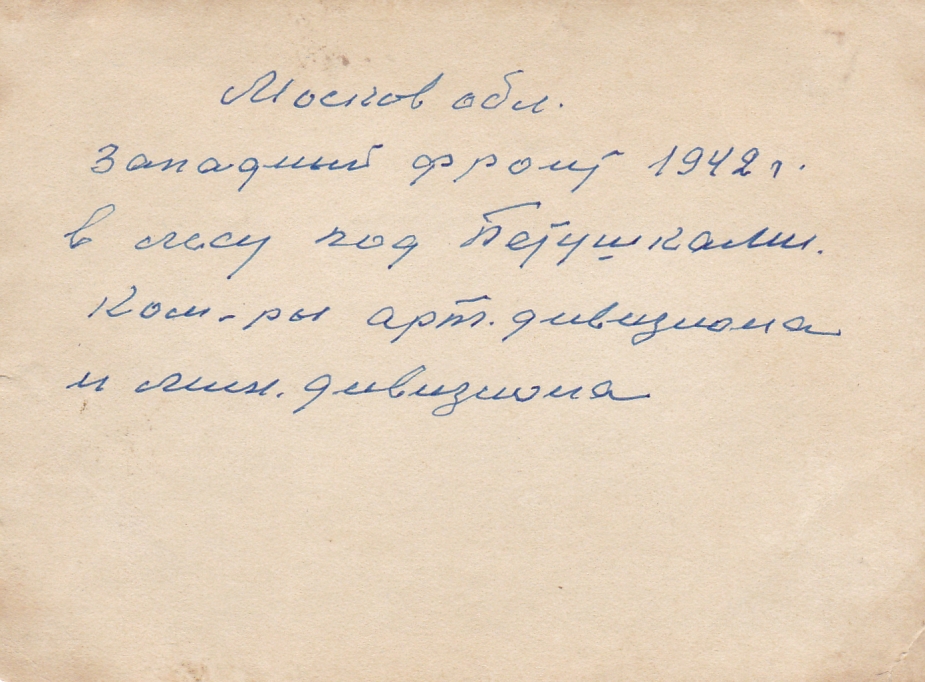 Москов обл.
Западный фронт 1942 г.
в лесу под Петушками.
Ком-ры арт. дивизиона
и мин. дивизиона